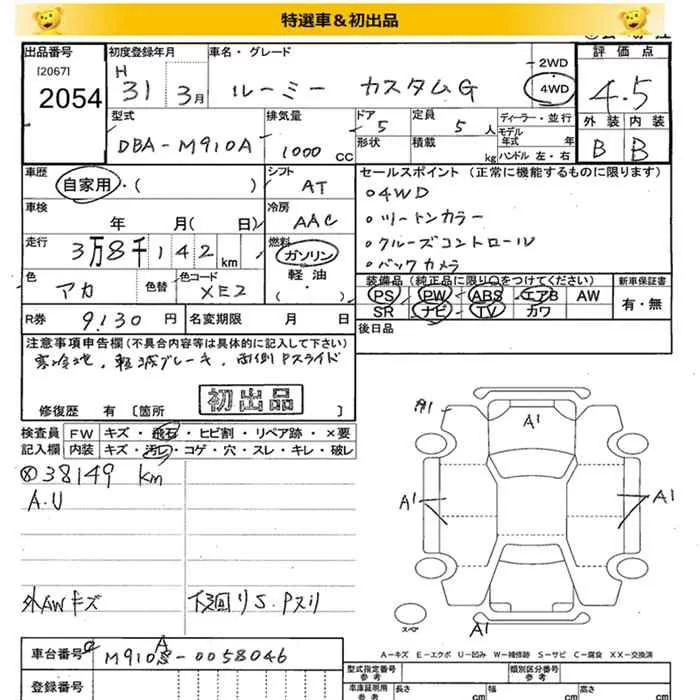 特選車&初出品
出品番号
[2067]
2054
初度登録年月
H 31 3月
車名・グレード
ルーミー カスタムG
2WD
4WD
評価点
4.5
外装 内装
B B
型式
DBA-M910A
排気量
1000 cc
ドア
5
形状
定員
5 人
積載
kg
ディーラー・並行
モデル
年式 年
ハンドル 左・右
車歴
自家用・( )
シフト
AT
車検
年 月( 日)
冷房
AAC
走行
3万8千142km
燃料
ガソリン
軽油
・( )
色
アカ
色替
色コード
XE2
R券
9,130 円
名変期限 月 日
セールスポイント(正常に機能するものに限ります)
○4WD
○ツートンカラー
○クルーズコントロール
○バックカメラ
装備品(純正品に限り○をつけてください)
PS PW ABS エアB AW
SR ナビ TV カワ
新車保証書
有・無
後日品
注意事項申告欄(不具合内容等は具体的に記入して下さい)
寒冷地、軽減ブレーキ、両側Pスライド
初出品
修復歴 有〔箇所 〕
検査員
記入欄
FW キズ・飛石・ヒビ割・リペア跡・×要
内装 キズ・汚レ・コゲ・穴・スレ・キレ・破レ
38149 km
A.U
外AWキズ
下廻りS.Pスリ
A1
A1
A1
A1
A1
スペア
A-キズ E-エクボ U-凹み W-補修跡 S-サビ C-腐食 XX-交換済
車台番号
M910A-0058046
登録番号
型式指定番号
参考
類別区分番号
参考
車庫証明用
参考
長さ cm
幅 cm
高さ cm